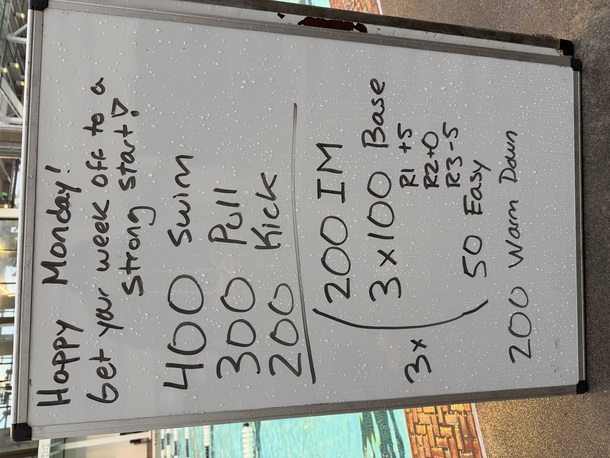 Happy Monday!
Get your week off to a
strong start!
400 Swim
300 Pull
200 Kick
3x ( 200 IM
3 x 100 Base
R1 +5
R2 +0
R3 -5
50 Easy
200 Warm Down